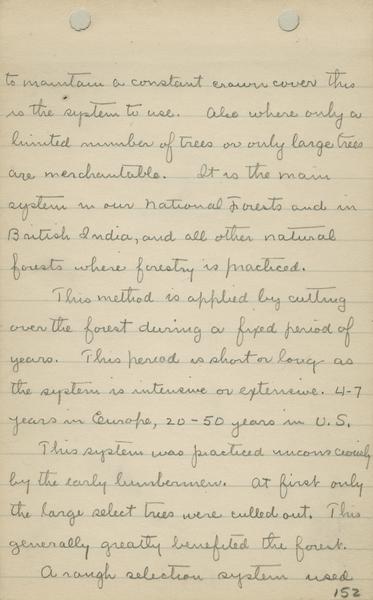 to maintain a constant crown cover this
is the system to use. Also where only a
limited number of trees or only large trees
are merchantable. It is the main
system in our National Forests and in
British India, and all other natural
forests where forestry is practiced.
This method is applied by cutting
over the forest during a fixed period of
years. This period is short or long as
the system is intensive or extensive. 4-7
years in Europe, 20-50 years in U.S.
This system was practiced unconsciously
by the early lumbermen. At first only
the large select trees were culled out. This
generally greatly benefited the forest.
A rough selection system used
152